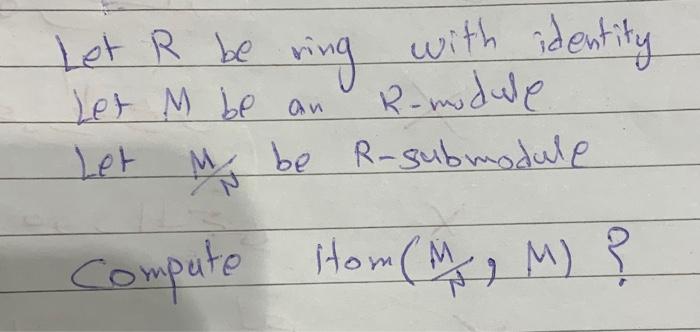 Let R be ring with identity
Let M be an R-module
Let M/N be R-submodule
Compute Hom(M/N, M) ?